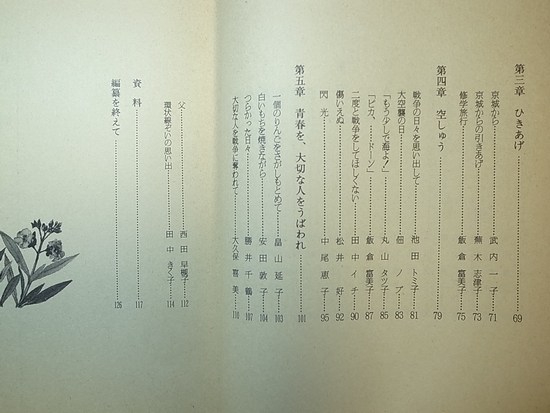 第三章 ひきあげ……69
京城から……武内一子……71
京城からの引きあげ……蕪木志津子……73
修学旅行……飯倉富美子……75
第四章 空しゅう……79
戦争の日々を思い出して……池田トミ子……81
大空襲の日……佃ノブ……83
「もう少しで海よ！」……丸山タツ子……85
「ピカ、……ドーン」……飯倉富美子……87
二度と戦争をしてほしくない……田中イチ……90
傷いえぬ……松井好……92
閃光……中尾恵子……95
第五章 青春を、大切な人をうばわれ……101
一個のりんごをさがしもとめて……畠山延子……103
白いもちを焼きながら……安田敦子……104
つらかった日々……勝井千鶴……107
大切な人を戦争に奪われて……大久保冨美……110
父……西田早槻子……112
環状線ぞいの思い出……田中きく子……114
資料……117
編纂を終えて……126